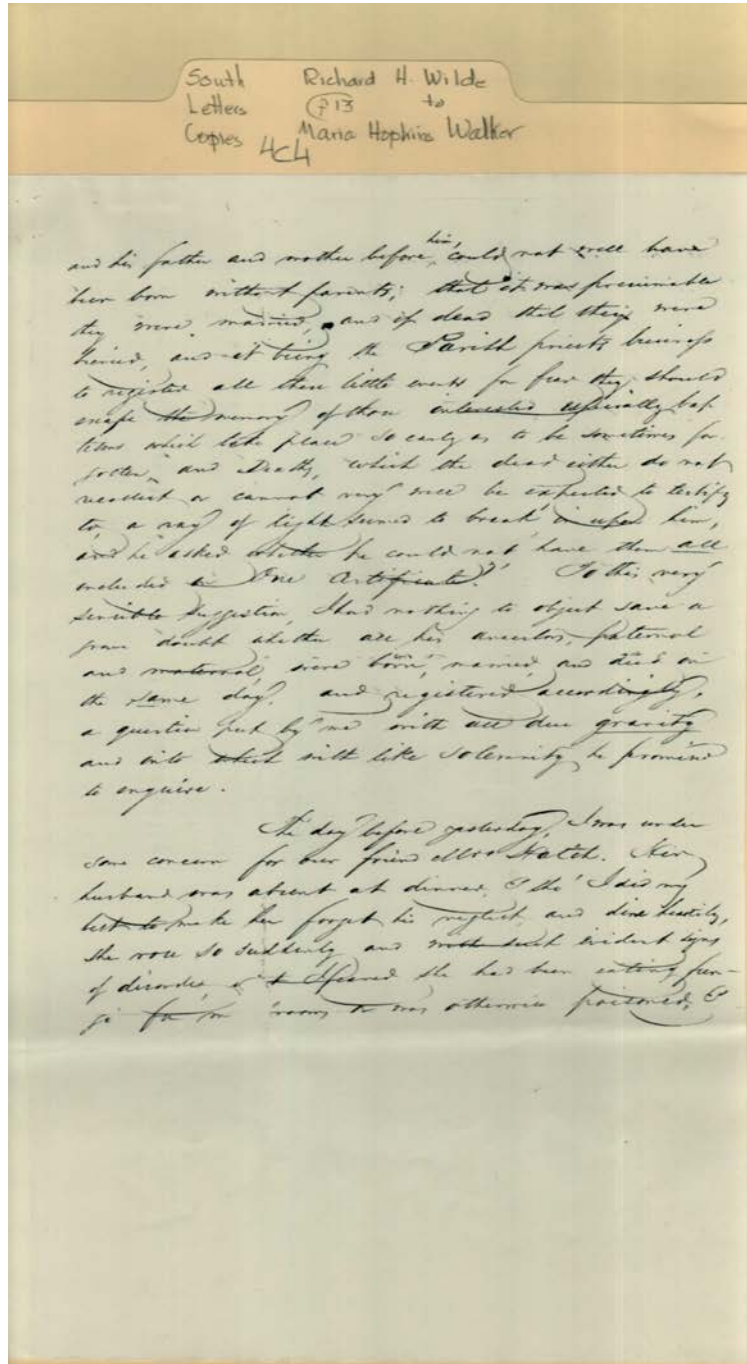 South Richard H. Wilde
Letters (P 13) to
Copies Maria Hopkins Walker
4C4
him,
and his father and mother before, could not well have
been born without parents; that it was presumable
they were married, and if dead that they were
buried, and it being the Parish priests business
to register all these little events for fear they should
escape the memory of those interested especially bap
tisms which take place so early as to be sometimes for
gotten, and Deaths, which the dead either do not
recollect or cannot very well be expected to testify
to, a ray of light seemed to break in upon him,
and he asked whether he could not have them all
included in One Certificate? To this very
sensible suggestion, I had nothing to object save a
grave doubt whether all his ancestors, paternal
and maternal, were born, married, and died on
the same day, and registered accordingly,
a question put by me with all due gravity
and into which with like solemnity he promised
to enquire.
The day before yesterday, I was under
some concern for our friend Mrs Hatch. Her
husband was absent at dinner, & tho' I did my
best to make her forget his neglect and dine heartily,
she rose so suddenly and with such evident signs
of disorder I feared she had been eating fun-
gi for mu 'rooms or was otherwise poisoned, &